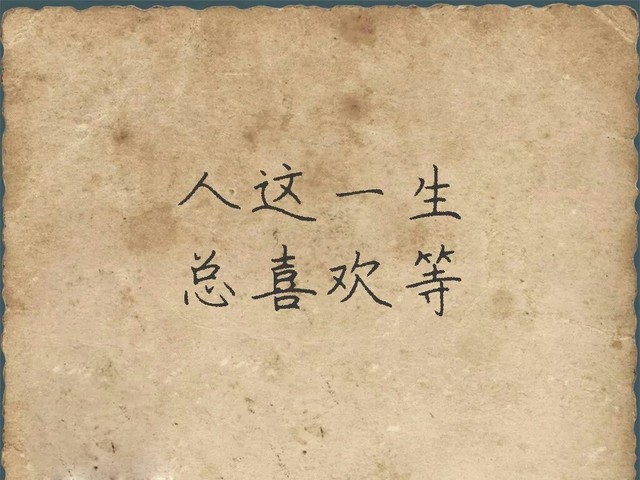 人这一生
总喜欢等